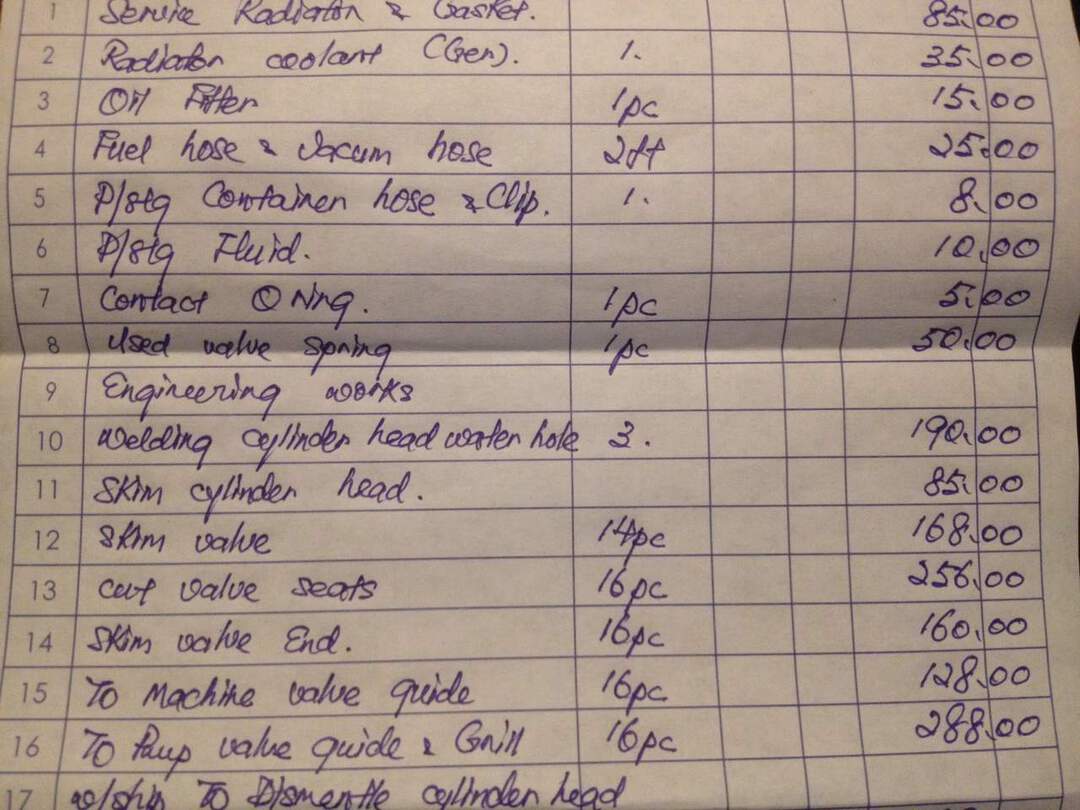 1 Service Radiator & Gasket. 85.00
2 Radiator coolant (Gen). 1. 35.00
3 Oil Filter 1pc 15.00
4 Fuel hose & Vacum hose 2ft 25.00
5 P/stg Container hose & Clip. 1. 8.00
6 P/stg Fluid. 10.00
7 Contact O Ring. 1pc 5.00
8 Used valve spring 1pc 50.00
9 Engineering works
10 Welding cylinder head water hole 3. 190.00
11 Skim cylinder head. 85.00
12 Skim valve 14pc 168.00
13 cut valve seats 16pc 256.00
14 Skim valve End. 16pc 160.00
15 To Machine valve guide 16pc 128.00
16 To valve guide & 16pc 288.00
17 w/ship To Dismentle cylinder head